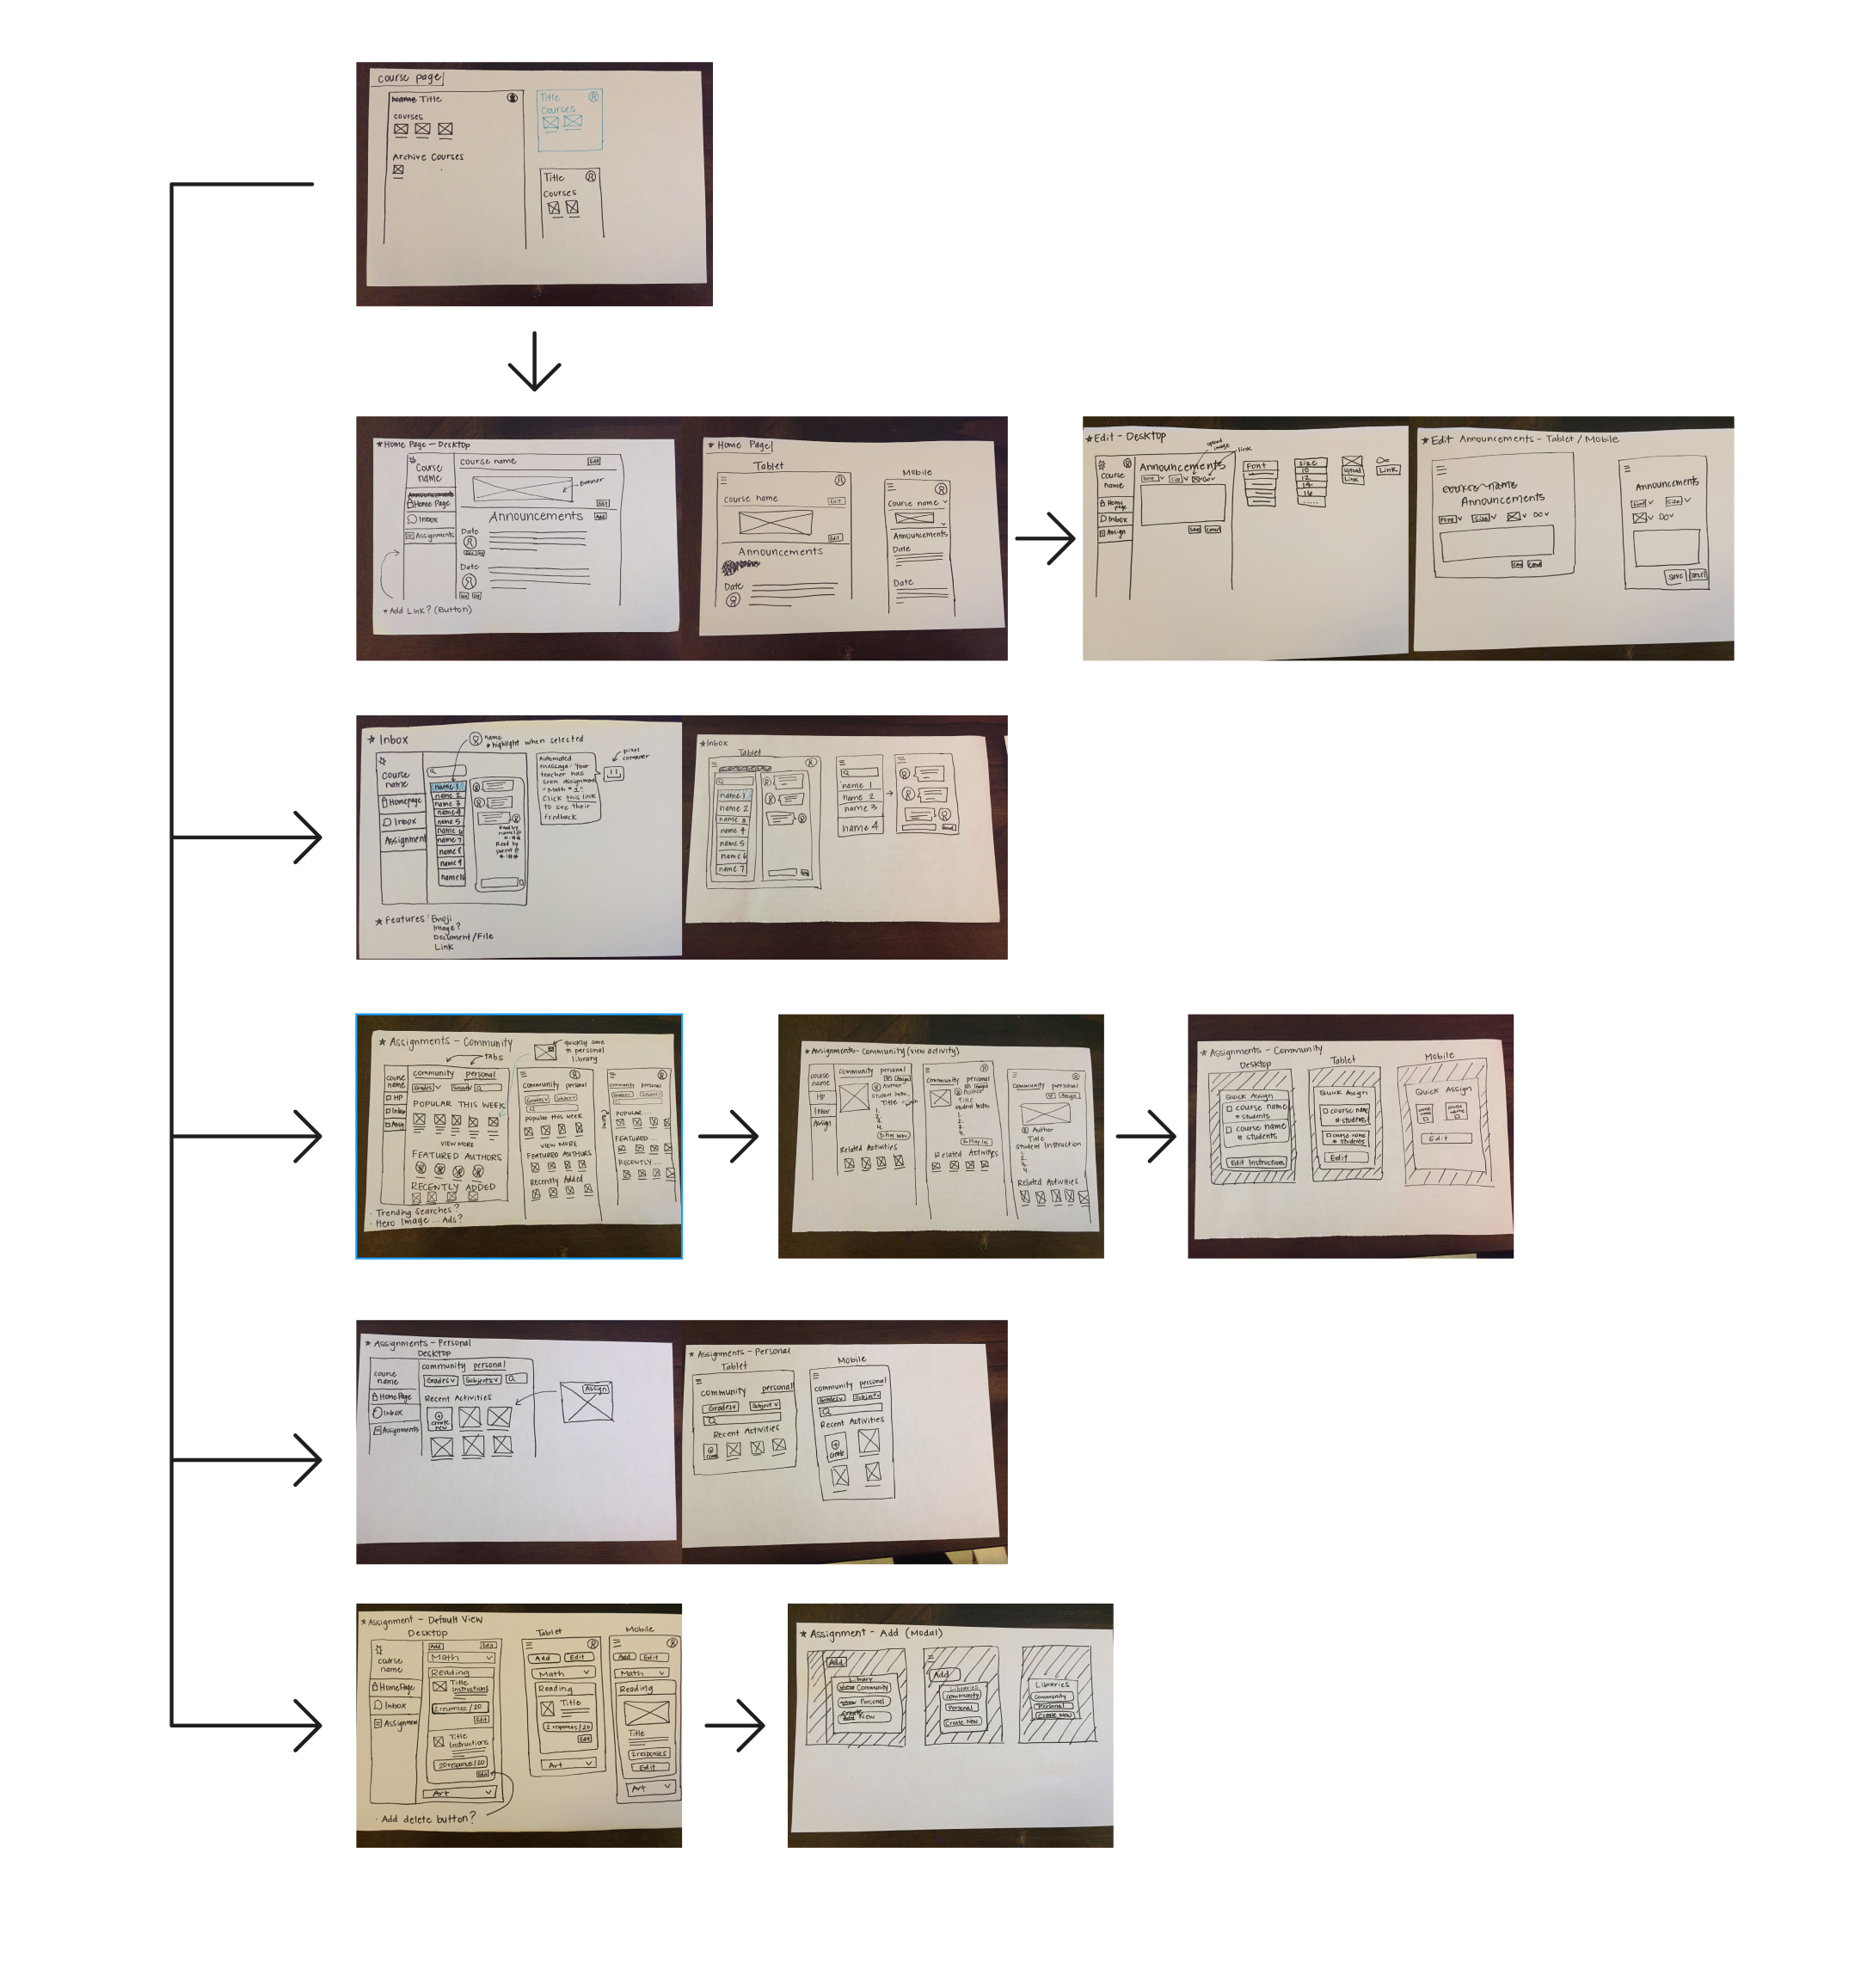 course page
Title
courses
Archive Courses
Title
Courses
Title
Courses
★ Home Page - Desktop
Course name
Home Page
Inbox
Assignments
course name
Edit
banner
Edit
Announcements
Add
Date
Date
* Add Link? (Button)
★ Home Page
Tablet
Course name
Edit
Edit
Announcements
Date
Mobile
Course name
Announcements
Date
Date
★ Edit - Desktop
upload image
link
course name
Home page
Inbox
Assign
Announcements
Font
Size
Save
Cancel
Font
Size
10
12
14
16
.....
upload
Link
Link
★ Edit Announcements - Tablet / Mobile
Announcements
Font
Size
Announcements
Font
Size
save
Cancel
★ Inbox
name
* highlight when selected
course name
Homepage
Inbox
Assignment
name 1
name 2
name 3
name 4
name 5
name 6
name 7
name 8
name 9
name 10
Read by
Read by
parent @
Automated
message: Your
teacher has
seen assignment
"Math #1"
Click this link
to see their
feedback
pixel
computer
★ Features: Emoji
Image?
Document/File
Link
★ Inbox
Tablet
name 1
name 2
name 3
name 4
name 5
name 6
name 7
name 1
name 2
name 3
name 4
★ Assignments - Community
tabs
quickly save
to personal
library
course name
HP
Inbox
Assign
community personal
Grades
Subject
POPULAR THIS WEEK
VIEW MORE
FEATURED AUTHORS
RECENTLY ADDED
- Trending searches?
- Hero Image... Ads?
community personal
Grades
Subject
popular this week
VIEW MORE
FEATURED AUTHORS
Recently Added
community personal
POPULAR...
FEATURED...
RECENTLY...
★ Assignments - Community (view activity)
course name
HP
Inbox
Assign
community personal
Assign
Author
Student Instru.
Title
1.
2.
3.
4.
Related Activities
community personal
Author
Title
Student Instru.
1.
2.
3.
4.
Related Activities
community personal
Assign
Author
Title
Student Instruction
1.
2.
3.
4.
Related Activities
★ Assignments - Community
Desktop
Quick Assign
course name
# students
course name
# students
Edit Instructions
Tablet
Quick Assign
course name
# students
course name
# students
Edit
Mobile
Quick Assign
course name
course name
Edit
★ Assignments - Personal
Desktop
course name
Home Page
Inbox
Assignments
community personal
Grades
Subjects
Recent Activities
create new
Assign
★ Assignments - Personal
Tablet
community personal
Grades
Subject
Recent Activities
Mobile
community personal
Grades
Subject
Recent Activities
create
★ Assignment - Default View
Desktop
course name
Home Page
Inbox
Assignment
Add
Edit
Math
Reading
Title
Instructions
2 responses / 20
Edit
Title
Instructions
20 responses / 20
Edit
Art
· Add delete button?
Tablet
Add
Edit
Math
Reading
Title
2 responses / 20
Edit
Art
Mobile
Add
Edit
Math
Reading
Title
2 responses
Edit
Art
★ Assignment - Add (Modal)
Add
Library
Community
Personal
Create New
Add
Libraries
Community
Personal
Create New
Libraries
Community
Personal
Create New